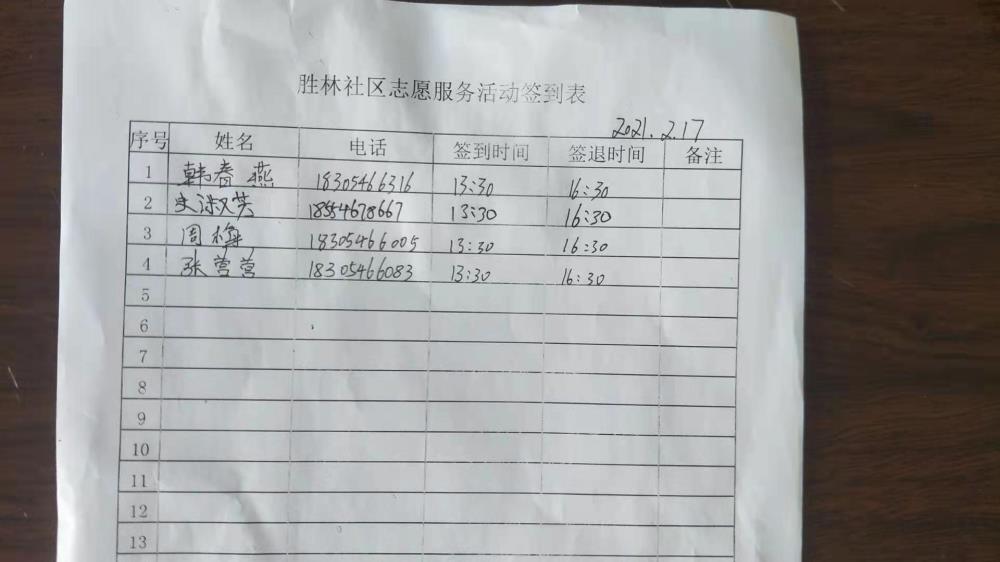 胜林社区志愿服务活动签到表
2021.2.17
序号 姓名 电话 签到时间 签退时间 备注
1 韩春燕 18305466316 13:30 16:30
2 史淑英 18554678667 13:30 16:30
3 周梅 18305466005 13:30 16:30
4 张营营 18305466083 13:30 16:30
5
6
7
8
9
10
11
12
13